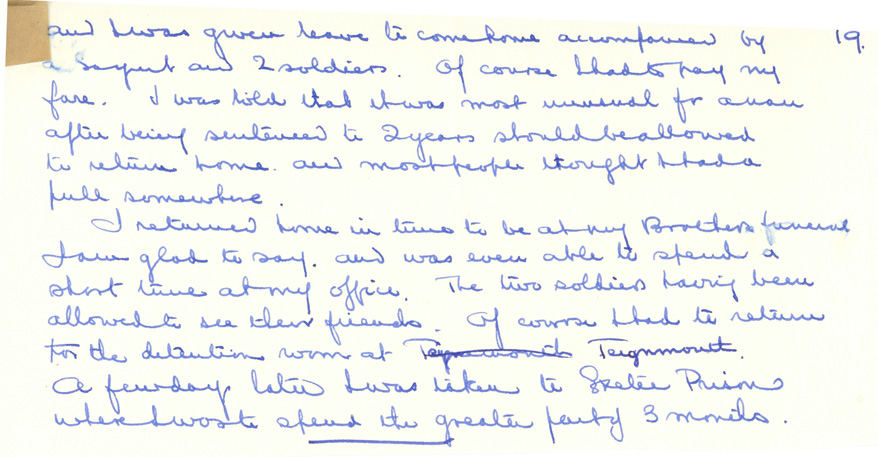 and I was given leave to come home accompanied by 19.
a Sergent and 2 soldiers. Of course I had to pay my
fare. I was told that it was most unusual for a man
after being sentenced to 2 years should be allowed
to return home. and most people thought I had a
pull somewhere.
I returned home in time to be at my Brothers funeral
I am glad to say. and was even able to spend a
short time at my office. The two soldiers having been
allowed to see their friends. Of course I had to return
to the detention room at Teignmouth Teignmouth.
A few days later I was taken to Exeter Prison
where I was to spend the greater part of 3 months.